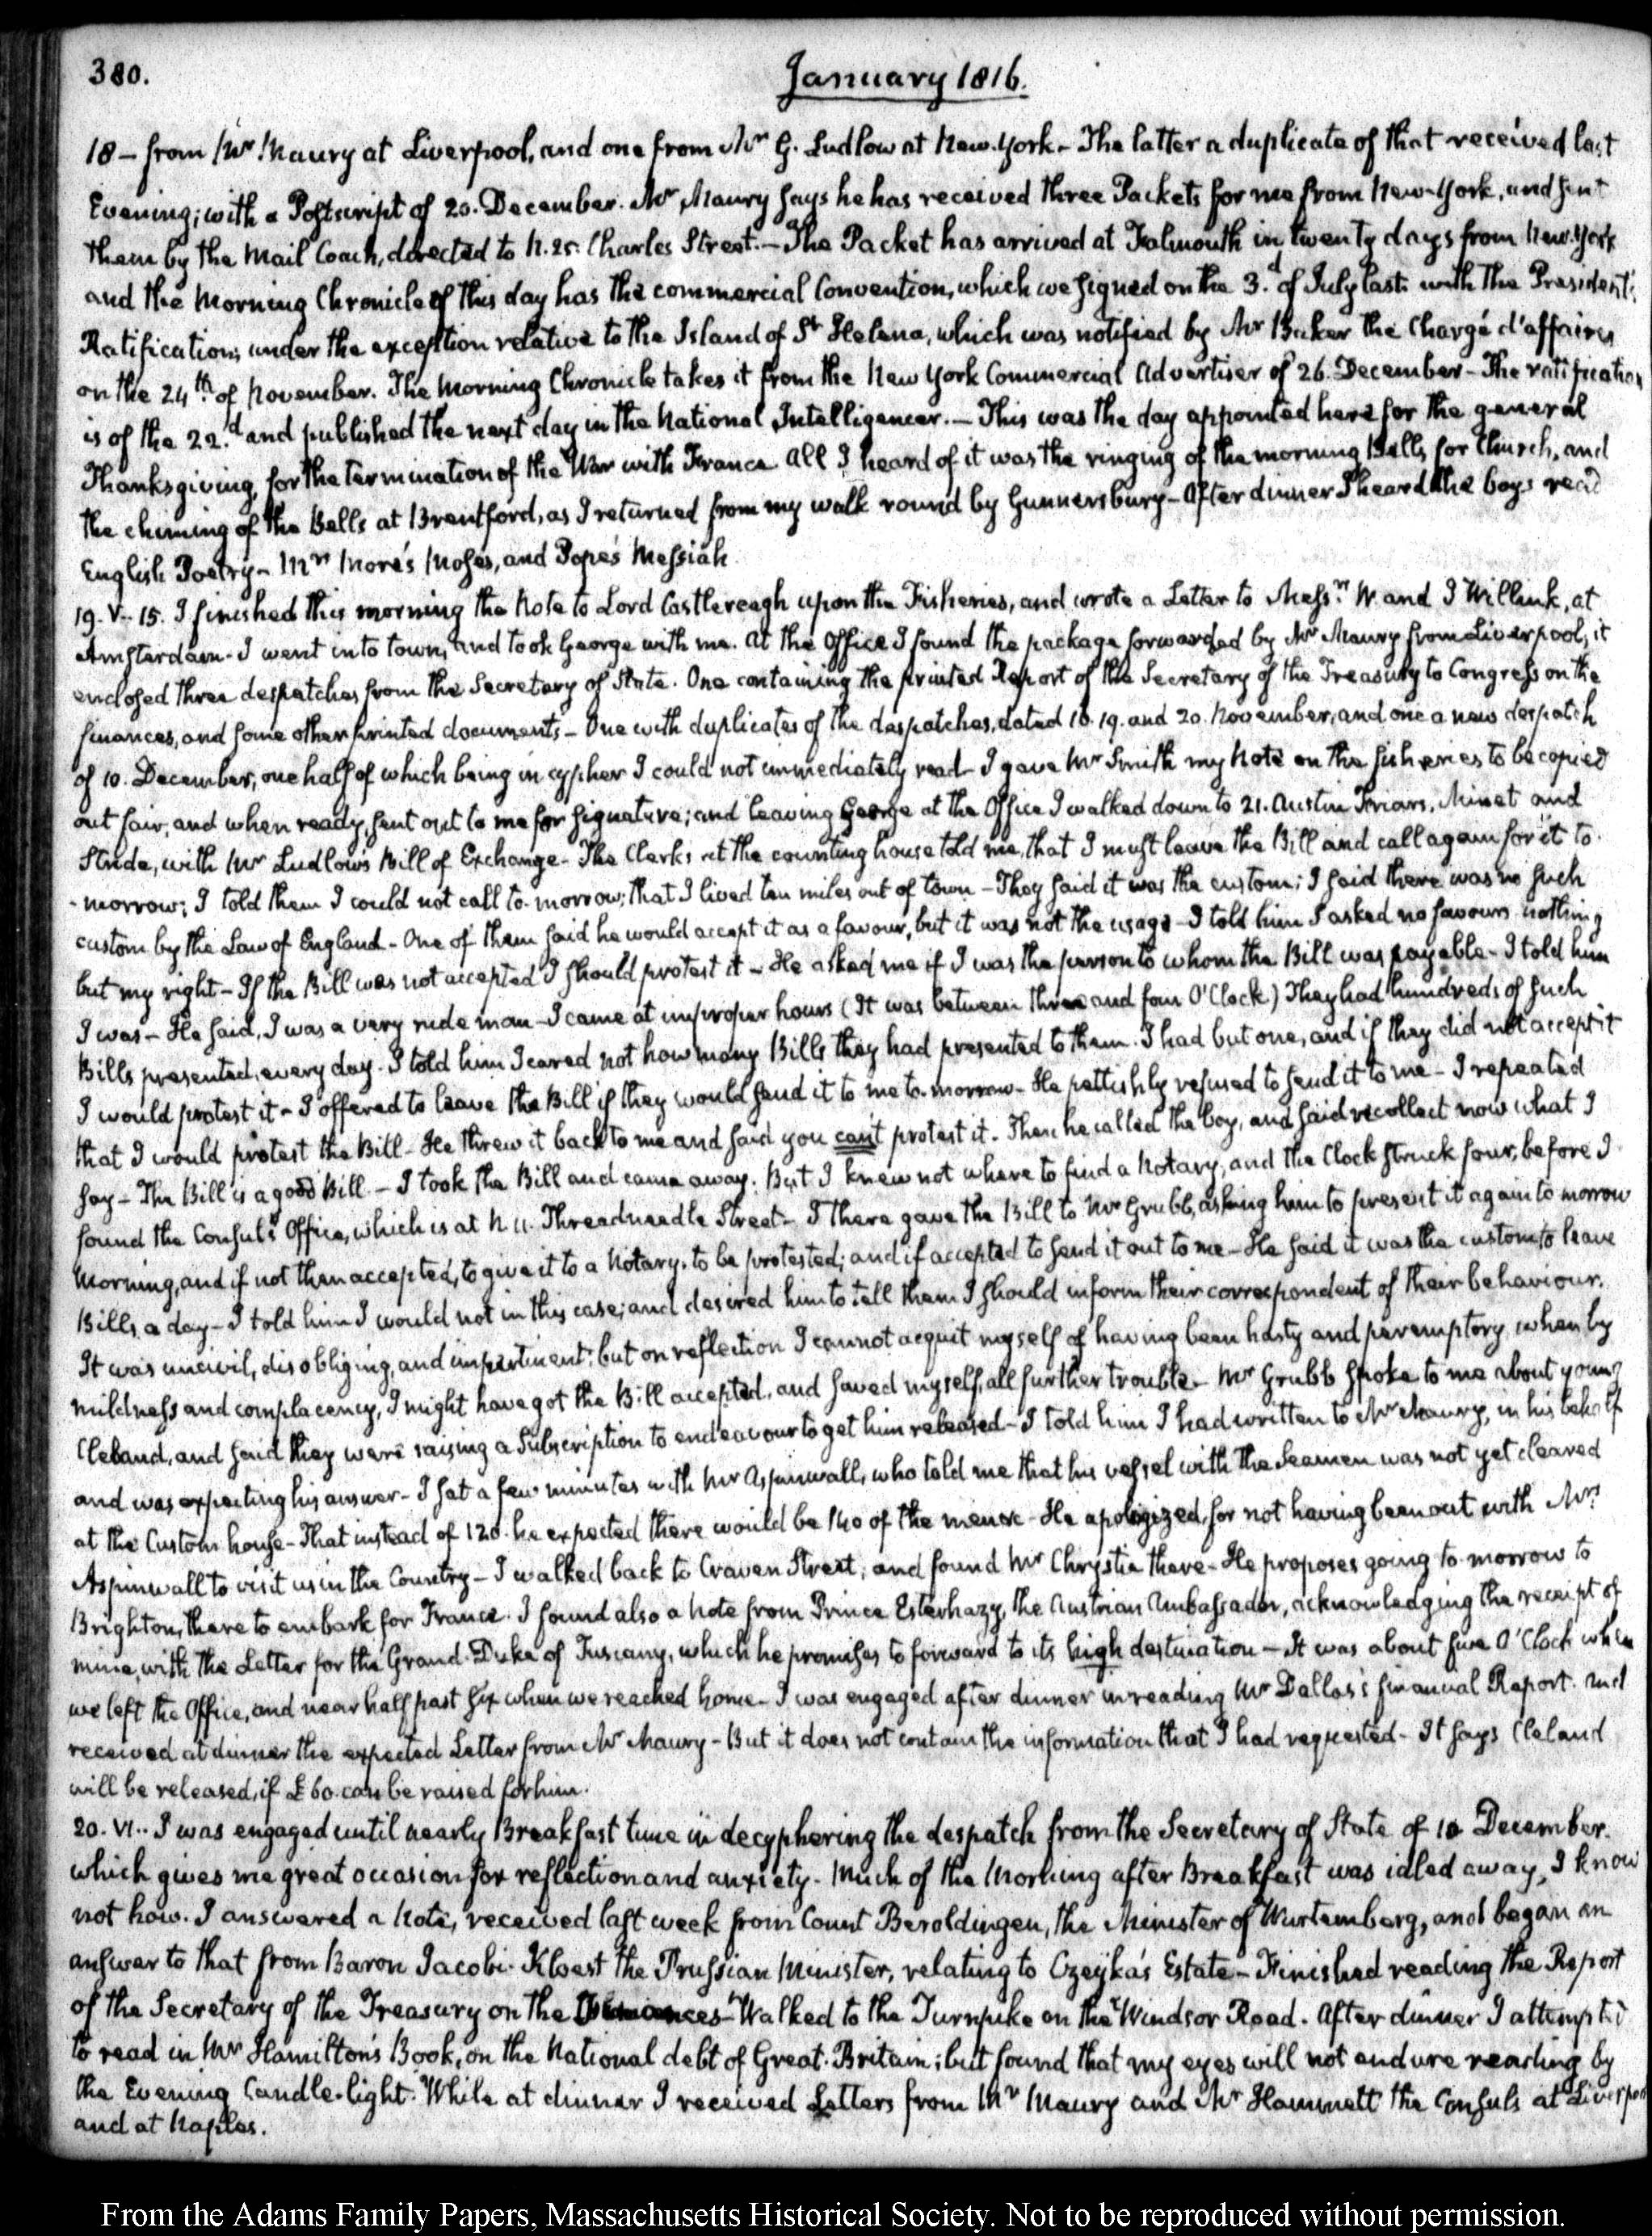 380.
January 1816.
18 - from Mr. Maury at Liverpool, and one from Mr. G. Ludlow at New-York - The latter a duplicate of that received last
Evening; with a Postscript of 20. December. Mr. Maury says he has received three Packets for me from New-York, and sent
them by the Mail Coach, directed to N. 25. Charles Street. - The Packet has arrived at Falmouth in twenty days from New-York
and the Morning Chronicle of this day has the commercial Convention, which we signed on the 3.d of July last with the President's
Ratification, under the exception relative to the Island of St. Helena, which was notified by Mr Baker the Chargé d'affaires
on the 24th. of November. The Morning Chronicle takes it from the New York Commercial Advertiser of 26. December - The ratification
is of the 22.d and published the next day in the National Intelligencer. - This was the day appointed here for the general
Thanksgiving, for the termination of the War with France. All I heard of it was the ringing of the morning Bells for Church, and
the chiming of the Bells at Brentford, as I returned from my walk round by Gunnersbury - After dinner I heard the boys read
English Poetry - Mrs More's Moses, and Pope's Messiah.
19. V.. 15. I finished this morning the Note to Lord Castlereagh upon the Fisheries, and wrote a Letter to Messrs. W. and J Willink, at
Amsterdam - I went into town, and took George with me. At the Office I found the package forwarded by Mr. Maury from Liverpool; it
enclosed three despatches from the Secretary of State. One containing the printed Report of the Secretary of the Treasury to Congress on the
finances, and some other printed documents - One with duplicates of the despatches, dated 18. 19. and 20. November, and one a new despatch
of 10. December, one half of which being in cypher I could not immediately read - I gave Mr Smith my Note on the fisheries to be copied
out fair, and when ready, sent out to me for signature; and leaving George at the Office I walked down to 21. Austin Friars, Minet and
Stride, with Mr Ludlow's Bill of Exchange - The Clerks at the counting house told me, that I must leave the Bill and call again for it to-
-morrow; I told them I could not call to-morrow; that I lived ten miles out of town - They said it was the custom; I said there was no such
custom by the Law of England - One of them said he would accept it as a favour, but it was not the usage - I told him I asked no favours nothing
but my right - If the Bill was not accepted I should protest it - He asked me if I was the person to whom the Bill was payable - I told him
I was - He said, I was a very rude man - I came at improper hours (It was between three and four O'Clock) They had hundreds of such
Bills presented, every day. I told him I cared not how many Bills they had presented to them. I had but one, and if they did not accept it
I would protest it - I offered to leave the Bill if they would send it to me to-morrow - He pettishly refused to send it to me - I repeated
that I would protest the Bill - He threw it back to me and said you can't protest it. Then he called the boy, and said recollect now what I
say - The Bill is a good Bill. - I took the Bill and came away. But I knew not where to find a Notary, and the Clock struck four, before I
found the Consul's Office, which is at N 11. Threadneedle Street - I there gave the Bill to Mr Grubb, asking him to present it again to morrow
Morning, and if not then accepted, to give it to a Notary, to be protested; and if accepted to send it out to me - He said it was the custom to leave
Bills, a day - I told him I would not in this case; and desired him to tell them I should inform their correspondent of their behaviour.
It was uncivil, disobliging, and impertinent; but on reflection I cannot acquit myself of having been hasty and peremptory, when by
mildness and complacency, I might have got the Bill accepted, and saved myself, all further trouble - Mr Grubb spoke to me about young
Cleland, and said they were raising a Subscription to endeavour to get him released - I told him I had written to Mr Maury, in his behalf
and was expecting his answer - I sat a few minutes with Mr Aspinwall, who told me that his vessel with the Seamen was not yet cleared
at the Custom house - That instead of 120. he expected there would be 140 of the men - He apologized, for not having been out with Mrs.
Aspinwall to visit us in the Country - I walked back to Craven Street; and found Mr Chrystie there - He proposes going to-morrow to
Brighton, there to embark for France. I found also a Note from Prince Esterhazy, the Austrian Ambassador, acknowledging the receipt of
mine, with the Letter for the Grand-Duke of Tuscany, which he promises to forward to its high destination - It was about five O'Clock when
we left the Office, and near half past six when we reached home - I was engaged after dinner in reading Mr Dallas's financial Report. And
received at dinner the expected Letter from Mr Maury - But it does not contain the information that I had requested - It says Cleland
will be released, if £60. can be raised for him.
20. VI.. I was engaged until nearly Breakfast time in decyphering the despatch from the Secretary of State of 10 December.
which gives me great occasion for reflection and anxiety. Much of the Morning after Breakfast was idled away, I know
not how. I answered a Note, received last week from Count Beroldingen, the Minister of Wurtemberg, and began an
answer to that from Baron Jacobi-Kloest the Prussian Minister, relating to Czeyka's Estate - Finished reading the Report
of the Secretary of the Treasury on the Finances - Walked to the Turnpike on the Windsor Road. After dinner I attempted
to read in Mr Hamilton's Book, on the National debt of Great-Britain; but found that my eyes will not endure reading by
the Evening Candle-light. While at dinner I received Letters from Mr Maury and Mr Hammett the Consuls at Liverpool
and at Naples.
From the Adams Family Papers, Massachusetts Historical Society. Not to be reproduced without permission.